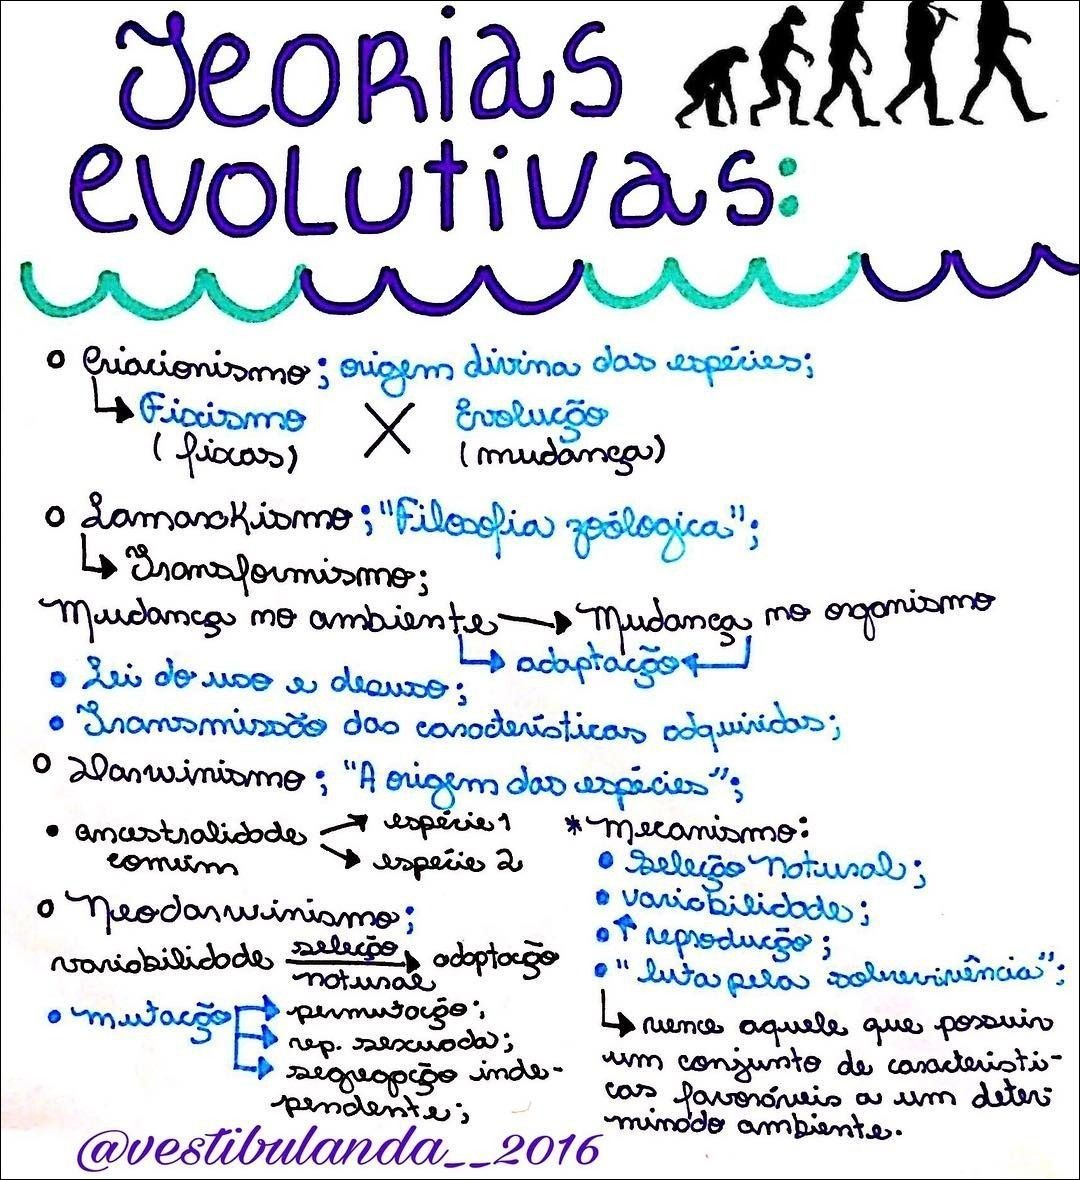 Teorias
evolutivas:
Criacionismo; origem divina das espécies;
Fixismo X Evolução
(fixas) (mudança)
Lamarckismo; "Filosofia zoólogica";
Transformismo;
Mudança no ambiente → Mudança no organismo
adaptação
Lei do uso e desuso;
Transmissão das características adquiridas;
Darwinismo; "A origem das espécies";
ancestralidade
comum
espécie 1
espécie 2
* Mecanismo:
seleção natural;
variabilidade;
↑ reprodução;
"luta pela sobrevivência";
vence aquele que possuir
um conjunto de característi-
cas favoráveis a um deter
minado ambiente.
Neodarwinismo;
variabilidade seleção natural → adaptação
mutação
permutação;
rep. sexuada;
segregação inde-
pendente;
@vestibulanda__2016